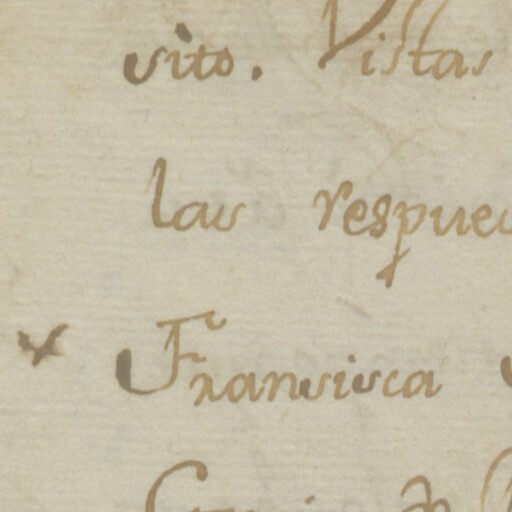 vito. Vistas
las respues
Francisca